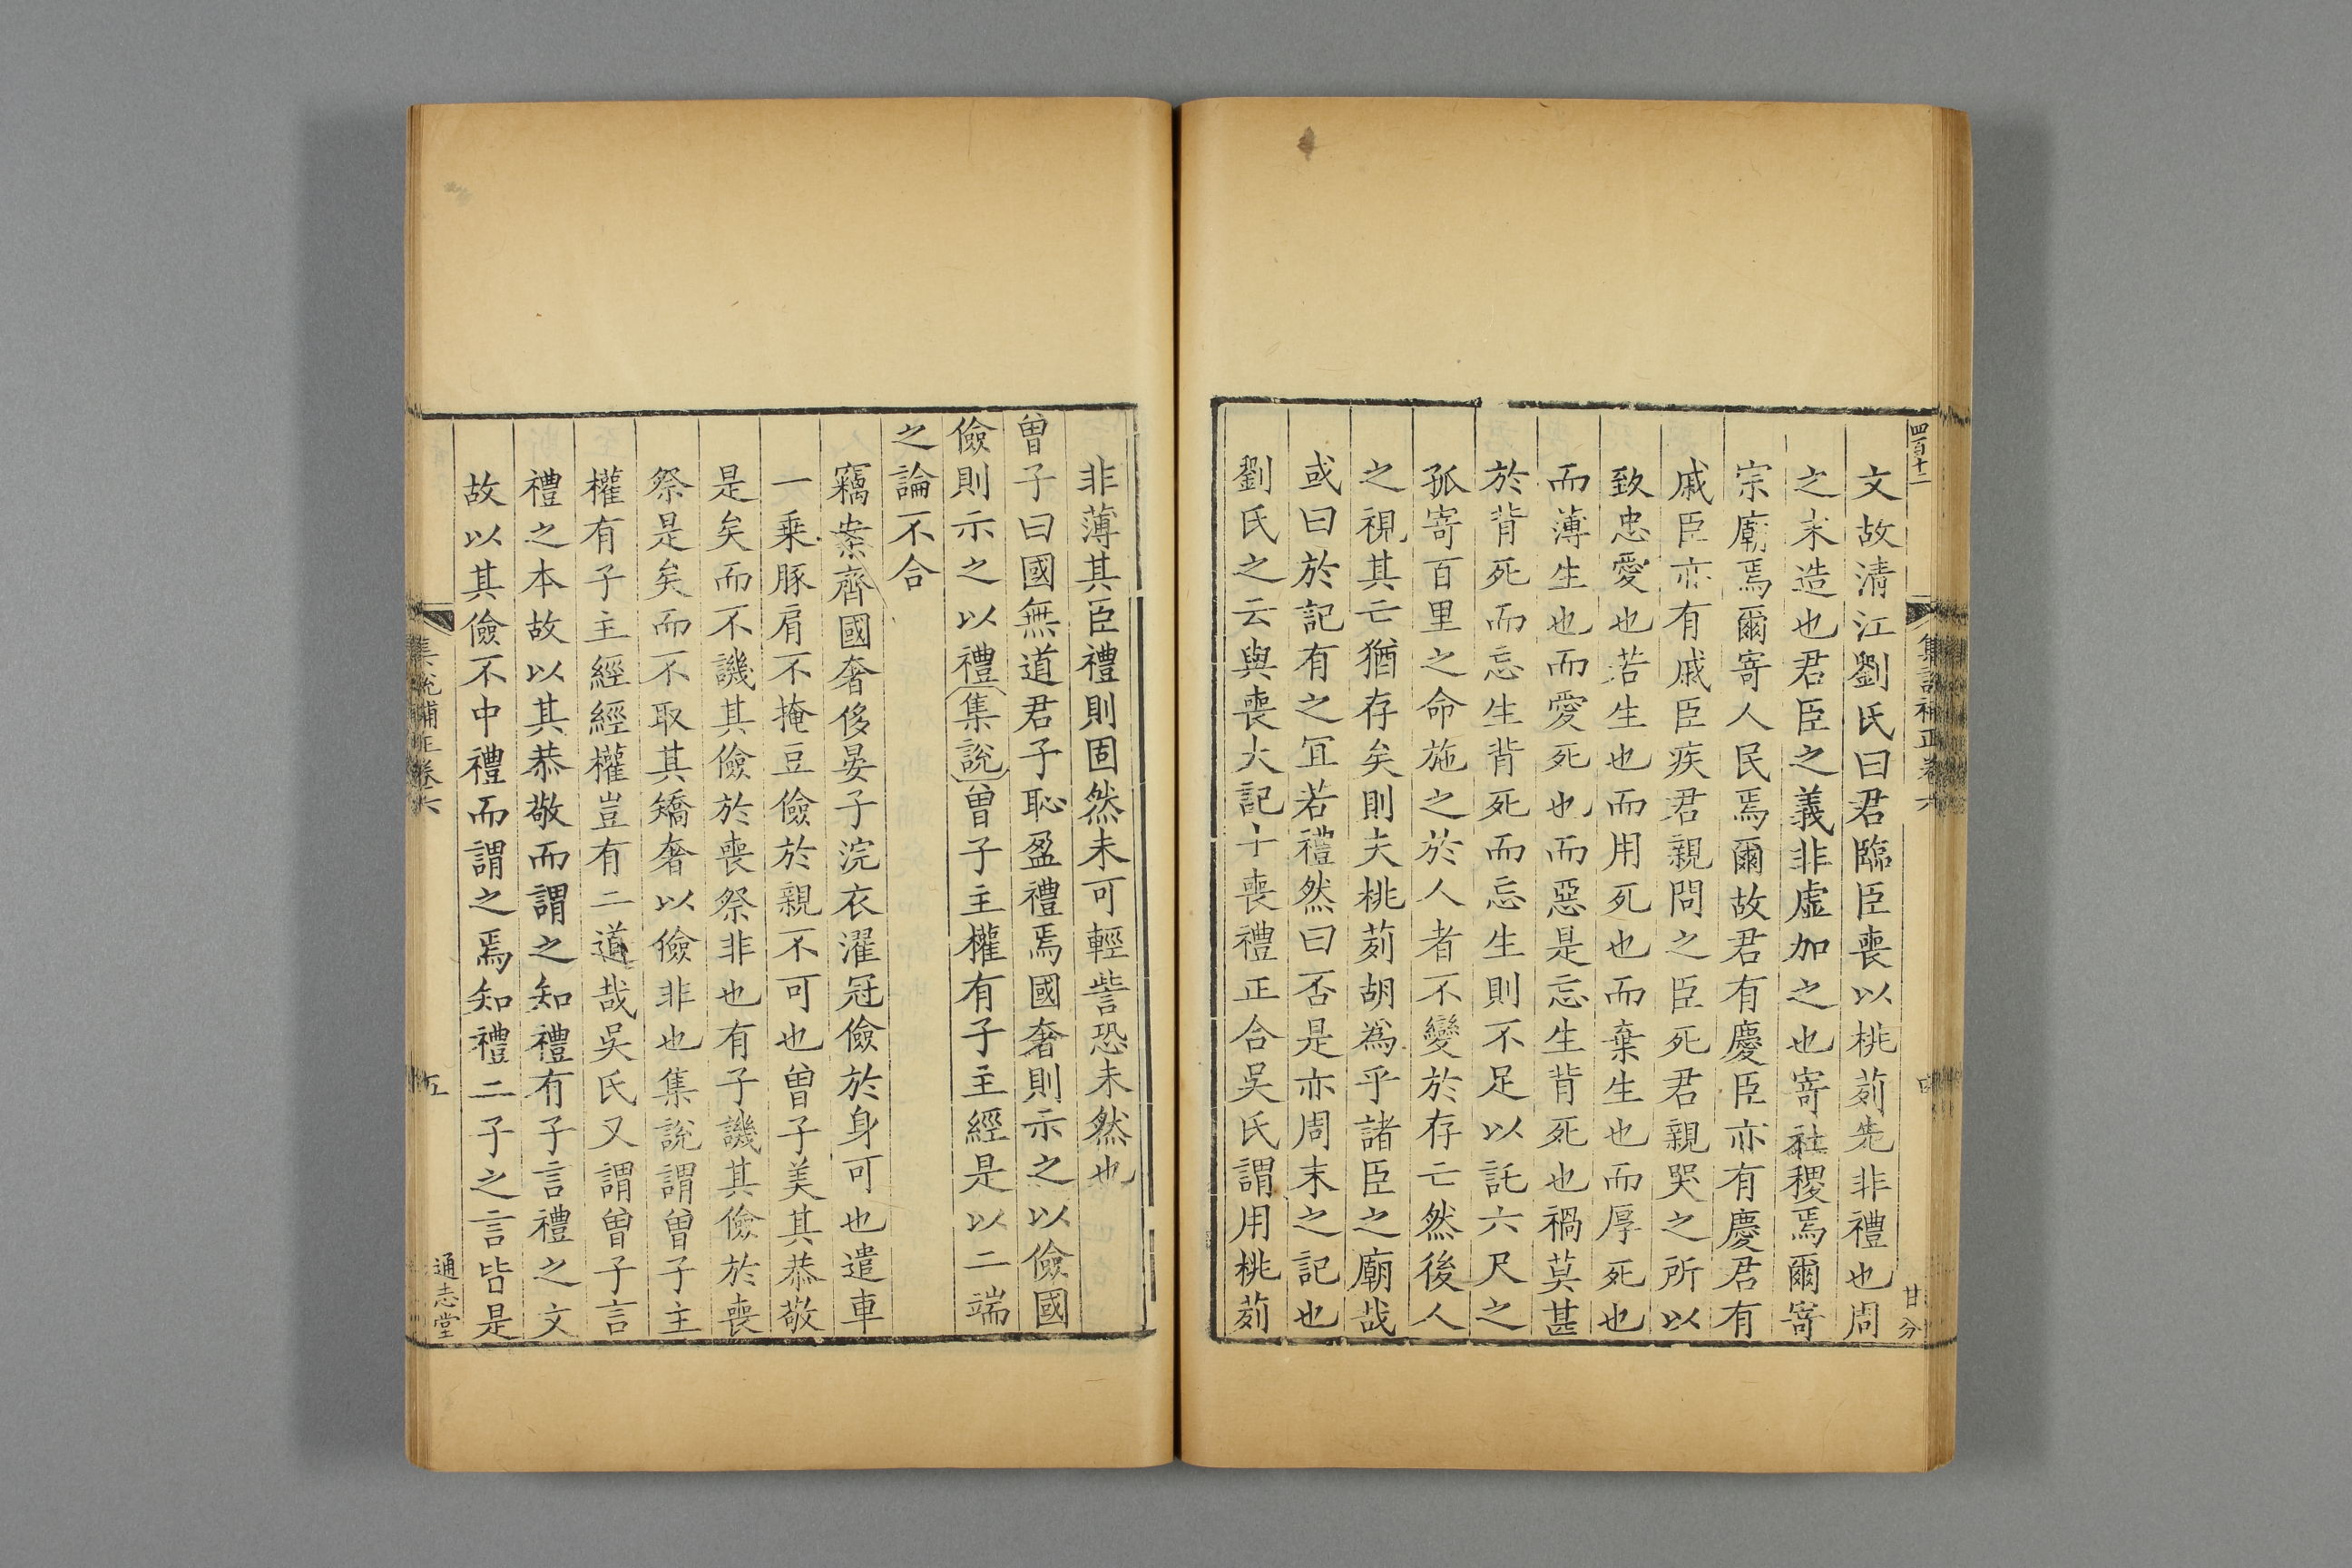 四百十二
集説補正卷六
四
甘分
文故清江劉氏曰君臨臣喪以桃茢先非禮也周
之末造也君臣之義非虛加之也寄社稷焉爾寄
宗廟焉爾寄人民焉爾故君有慶臣亦有慶君有
戚臣亦有戚臣疾君親問之臣死君親哭之所以
致忠愛也若生也而用死也而棄生也而厚死也
而薄生也而愛死也而惡是忘生背死也禍莫甚
於背死而忘生背死而忘生則不足以託六尺之
孤寄百里之命施之於人者不變於存亡然後人
之視其亡猶存矣則夫桃茢胡為乎諸臣之廟哉
或曰於記有之冝若禮然曰否是亦周末之記也
劉氏之云與喪大記士喪禮正合吳氏謂用桃茢
非薄其臣禮則固然未可輕訾恐未然也
曽子曰國無道君子恥盈禮焉國奢則示之以儉國
儉則示之以禮〔集說〕曽子主權有子主經是以二端
之論不合
竊案齊國奢侈晏子浣衣濯冠儉於身可也遣車
一乗豚肩不掩豆儉於親不可也曽子美其恭敬
是矣而不譏其儉於喪祭非也有子譏其儉於喪
祭是矣而不取其矯奢以儉非也集說謂曽子主
權有子主經經權豈有二道哉吳氏又謂曽子言
禮之本故以其恭敬而謂之知禮有子言禮之文
故以其儉不中禮而謂之焉知禮二子之言皆是
集說補正卷六
五
通志堂